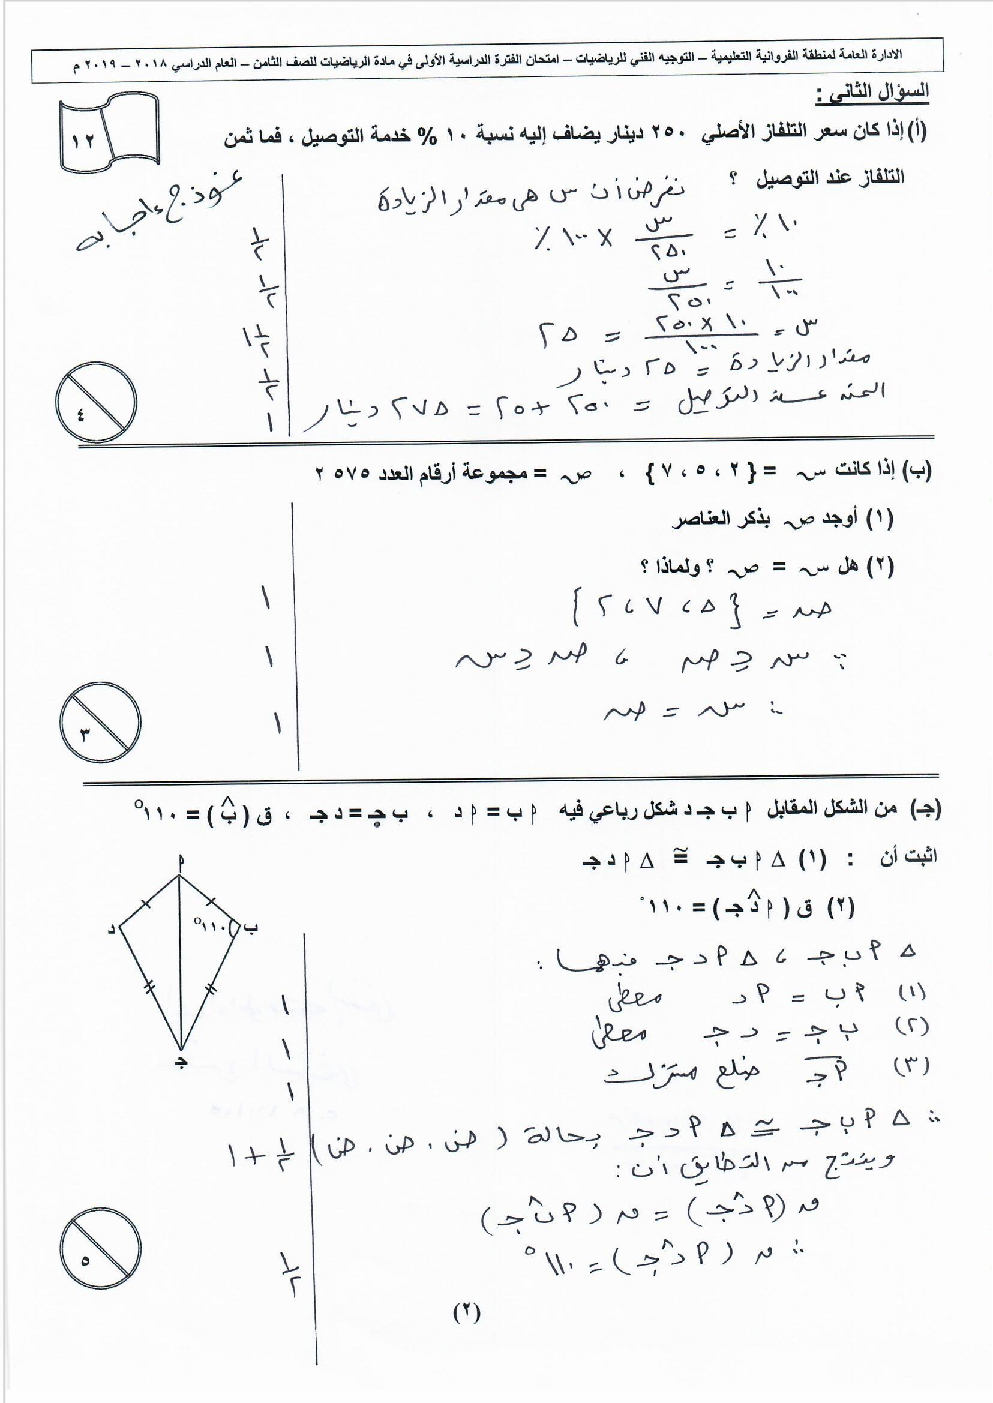 الادارة العامة لمنطقة الفروانية التعليمية – التوجيه الفني للرياضيات – امتحان الفترة الدراسية الأولى في مادة الرياضيات للصف الثامن – العام الدراسي ٢٠١٨ – ٢٠١٩ م
السؤال الثاني :
١٢
(أ) إذا كان سعر التلفاز الأصلي ٢٥٠ دينار يضاف إليه نسبة ١٠ % خدمة التوصيل ، فما ثمن
التلفاز عند التوصيل ؟
نموذج إجابه
نفرض أن س هي مقدار الزيادة
١٠٪ = س/٢٥٠ × ١٠٠٪ ١/٢
١٠/١٠٠ = س/٢٥٠ ١/٢
س = ١٠ × ٢٥٠/١٠٠ = ٢٥ ١ ١/٢
مقدار الزيادة = ٢٥ دينار ١/٢
الثمن عند التوصيل = ٢٥٠ + ٢٥ = ٢٧٥ دينار ١
٤
(ب) إذا كانت س = {٢ ، ٥ ، ٧} ، ص = مجموعة أرقام العدد ٢٥٧٥
(١) أوجد ص بذكر العناصر
(٢) هل س = ص ؟ ولماذا ؟
ص = {٥ ، ٧ ، ٢} ١
∵ س ⊆ ص ، ص ⊆ س ١
∴ س = ص ١
٣
(جـ) من الشكل المقابل أ ب جـ د شكل رباعي فيه أ ب = أ د ، ب جـ = د جـ ، ق (ب̂) = ١١٠°
اثبت أن : (١) Δ أ ب جـ ≅ Δ أ د جـ
(٢) ق (أ د̂ جـ) = ١١٠°
أ
د
ب
١١٠°
جـ
Δ أ ب جـ ، Δ أ د جـ فيهما :
(١) أ ب = أ د معطى ١
(٢) ب جـ = د جـ معطى ١
(٣) أ جـ ضلع مشترك ١
∴ Δ أ ب جـ ≅ Δ أ د جـ بحالة (ض . ض . ض) ١/٢ + ١
وينتج من التطابق أن :
ق (أ د̂ جـ) = ق (أ ب̂ جـ)
∴ ق (أ د̂ جـ) = ١١٠° ١/٢
٥
(٢)